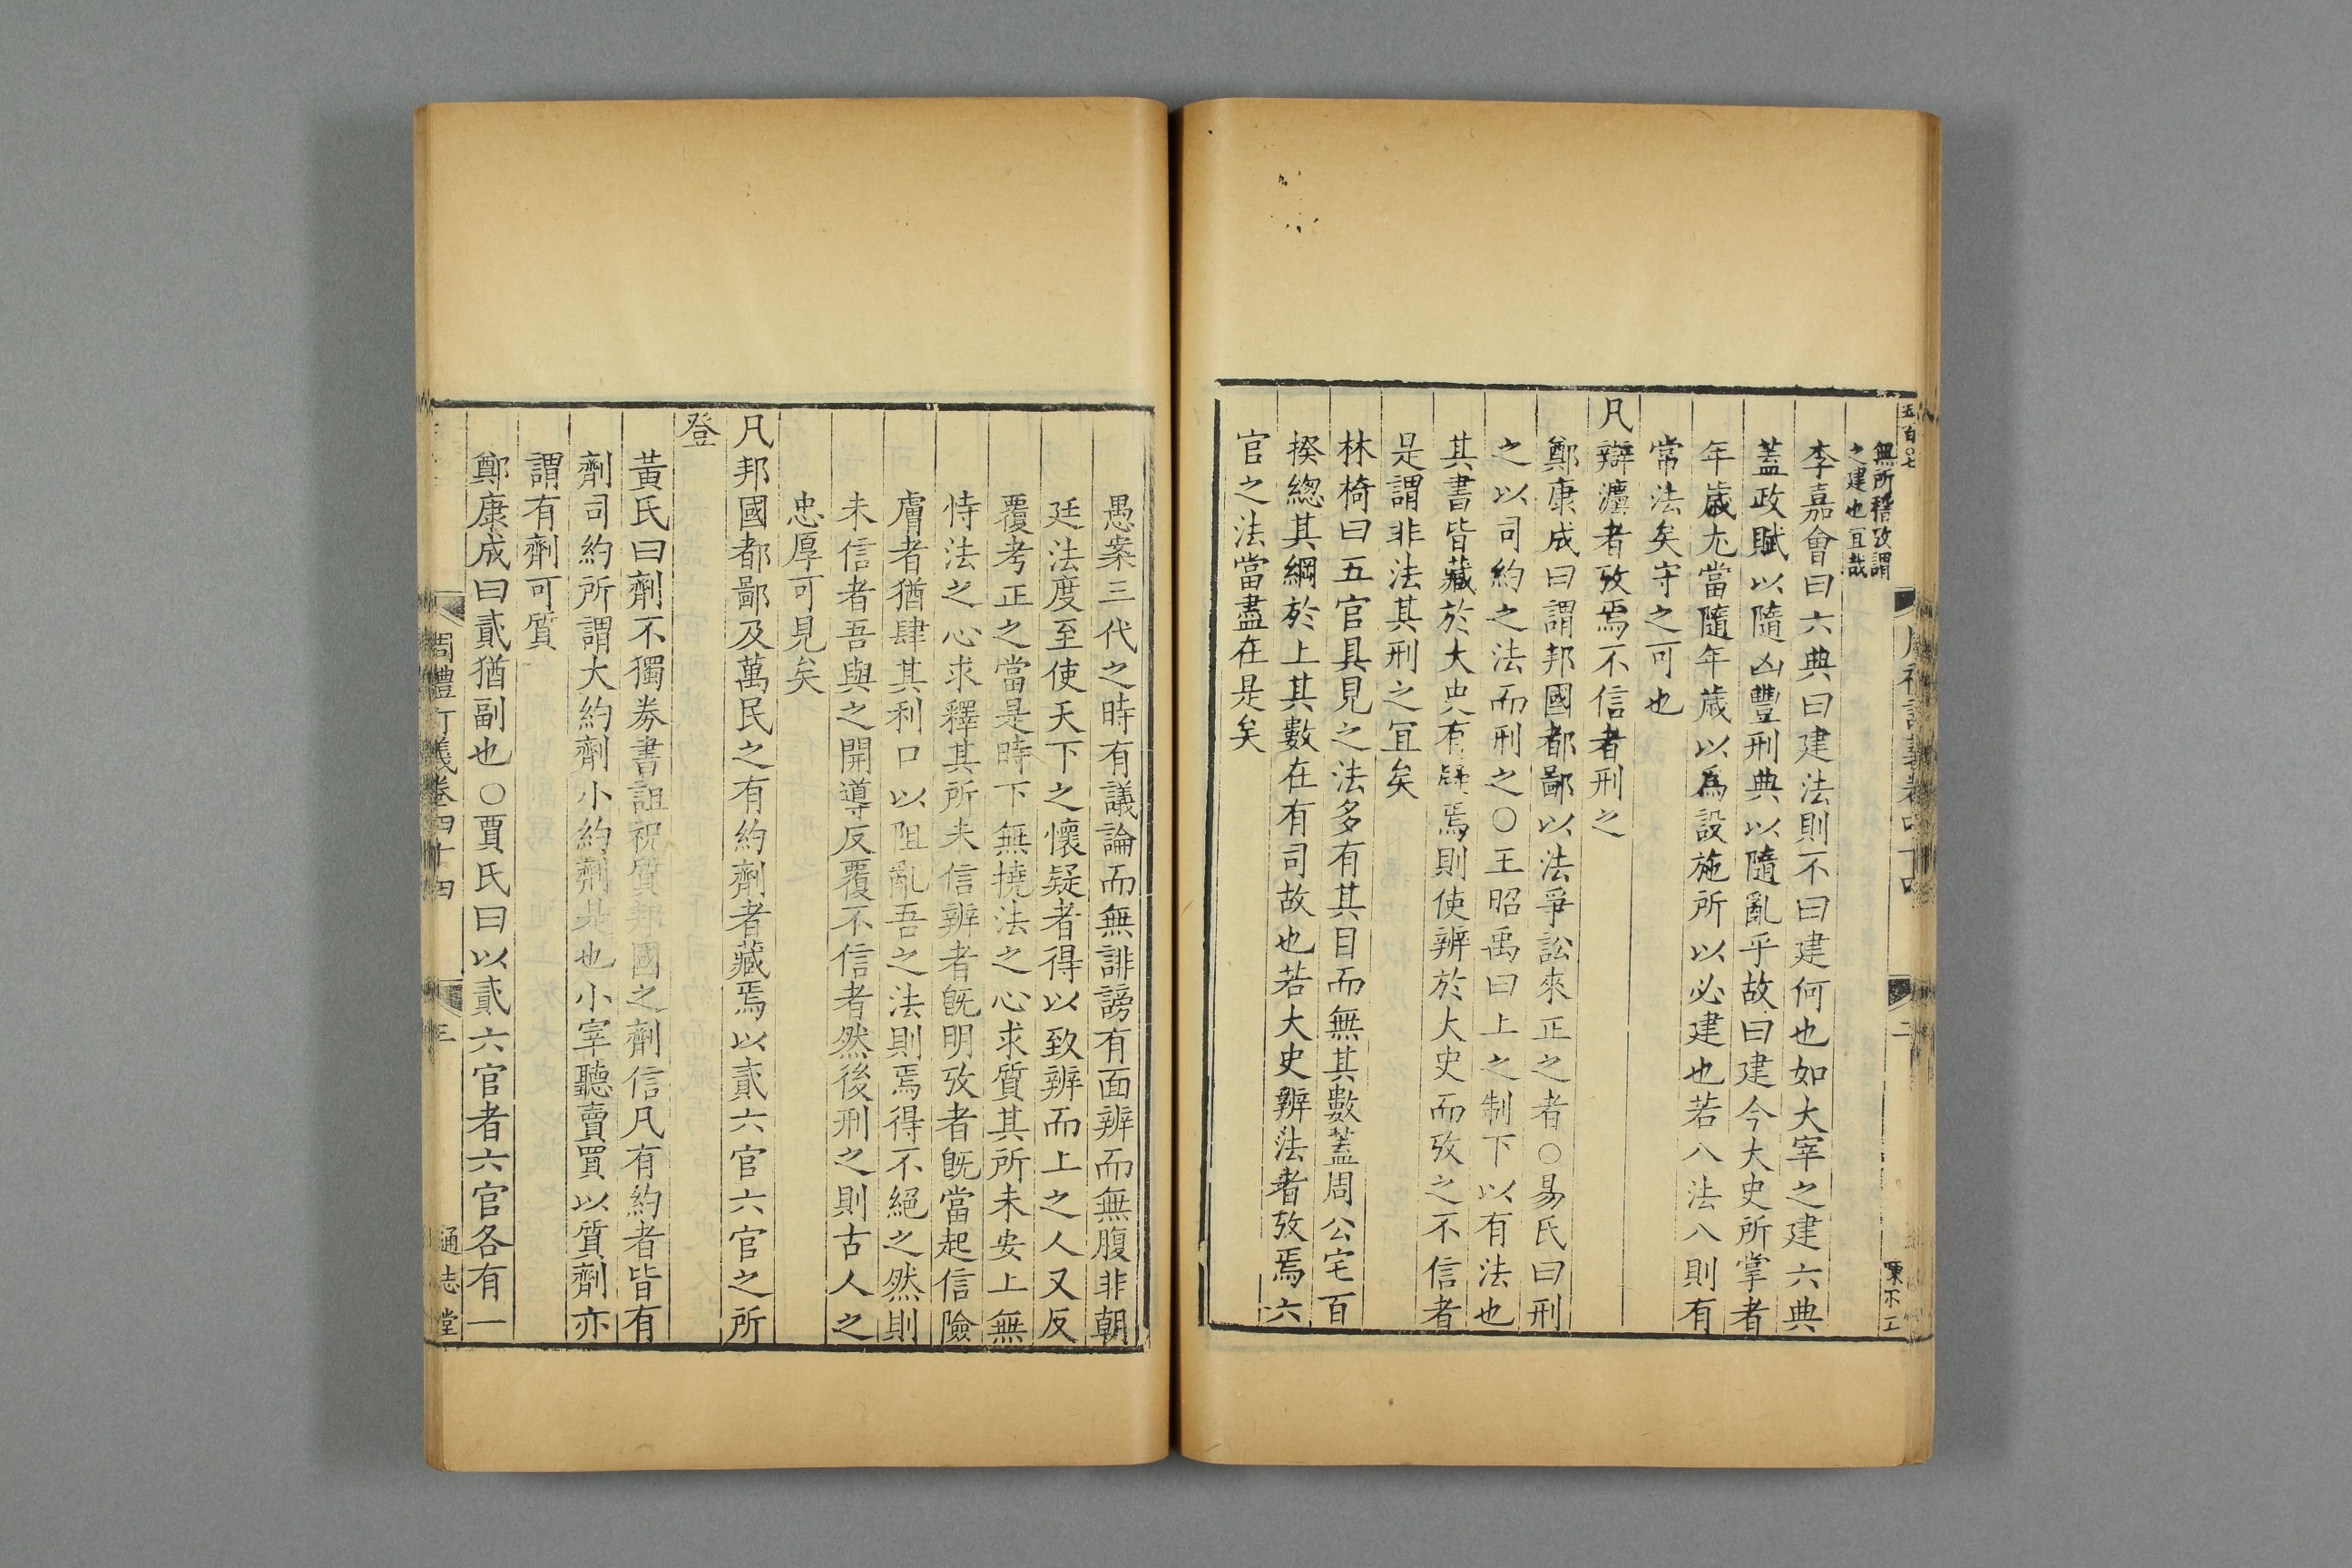 五百○七
無所稽攷謂
之建也宜哉
李嘉會曰六典曰建法則不曰建何也如大宰之建六典
蓋政賦以隨凶豐刑典以隨亂乎故曰建今大史所掌者
年歲尤當隨年歲以爲設施所以必建也若八法八則有
常法矣守之可也
凡辯灋者攷焉不信者刑之
鄭康成曰謂邦國都鄙以法爭訟來正之者○易氏曰刑
之以司約之法而刑之○王昭禹曰上之制下以有法也
其書皆藏於大史有疑焉則使辨於大史而攷之不信者
是謂非法其刑之宜矣
林椅曰五官具見之法多有其目而無其數蓋周公宅百
揆總其綱於上其數在有司故也若大史辨法者攷焉六
官之法當盡在是矣
愚案三代之時有議論而無誹謗有面辨而無腹非朝
廷法度至使天下之懷疑者得以致辨而上之人又反
覆考正之當是時下無撓法之心求質其所未安上無
恃法之心求釋其所未信辨者旣明攷者旣當起信險
膚者猶肆其利口以阻亂吾之法則焉得不絕之然則
未信者吾與之開導反覆不信者然後刑之則古人之
忠厚可見矣
凡邦國都鄙及萬民之有約劑者藏焉以貳六官六官之所
登
黃氏曰劑不獨券書詛祝質邦國之劑信凡有約者皆有
劑司約所謂大約劑小約劑是也小宰聽賣買以質劑亦
謂有劑可質
鄭康成曰貳猶副也○賈氏曰以貳六官者六官各有一
周禮訂義卷四十四
三
通志堂